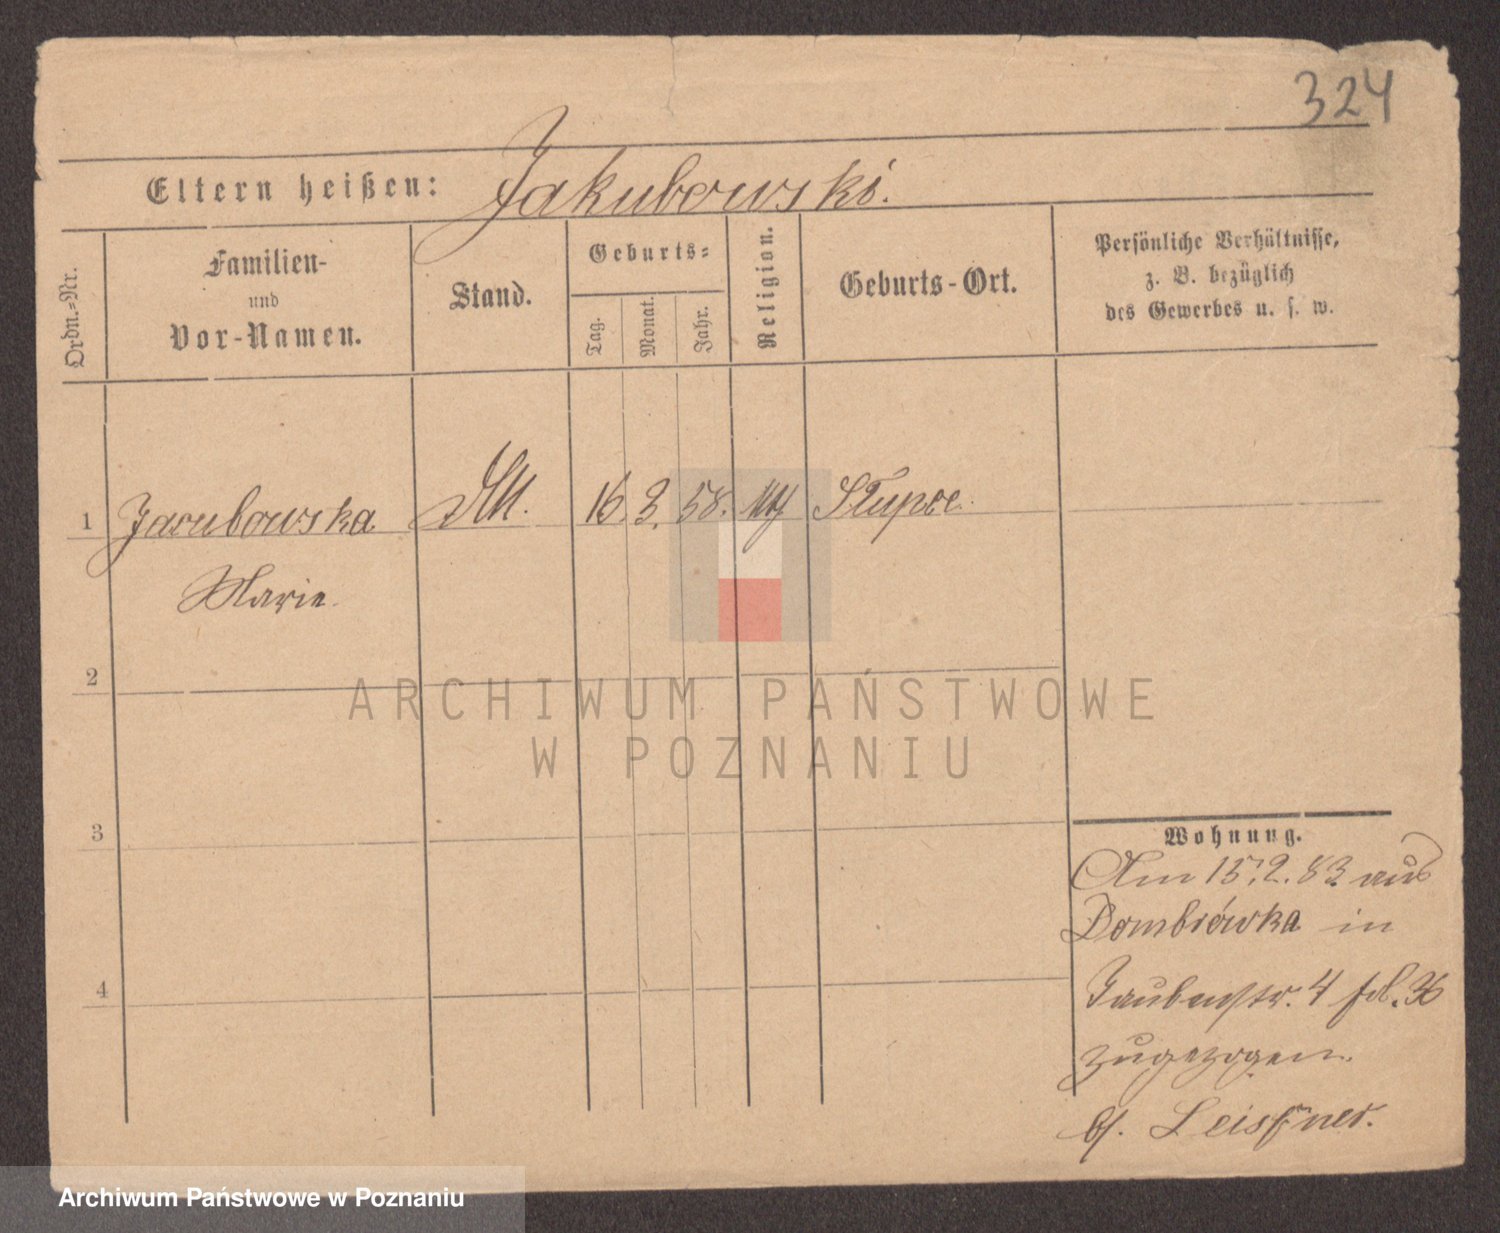 324
Eltern heißen: Jakubowski.
Ordn.-Nr.
Familien-
und
Vor-Namen.
Stand.
Geburts-
Tag.
Monat.
Jahr.
Religion.
Geburts-Ort.
Persönliche Verhältnisse,
z. B. bezüglich
des Gewerbes u. s. w.
1 Jacubowska 16. 3. 58. Słupce.
Marie.
2
3
4
ARCHIWUM PAŃSTWOWE
W POZNANIU
Wohnung.
Am 15.2.83 aus
Dombrówka in
Taubenstr. 4
zugezogen.
Archiwum Państwowe w Poznaniu